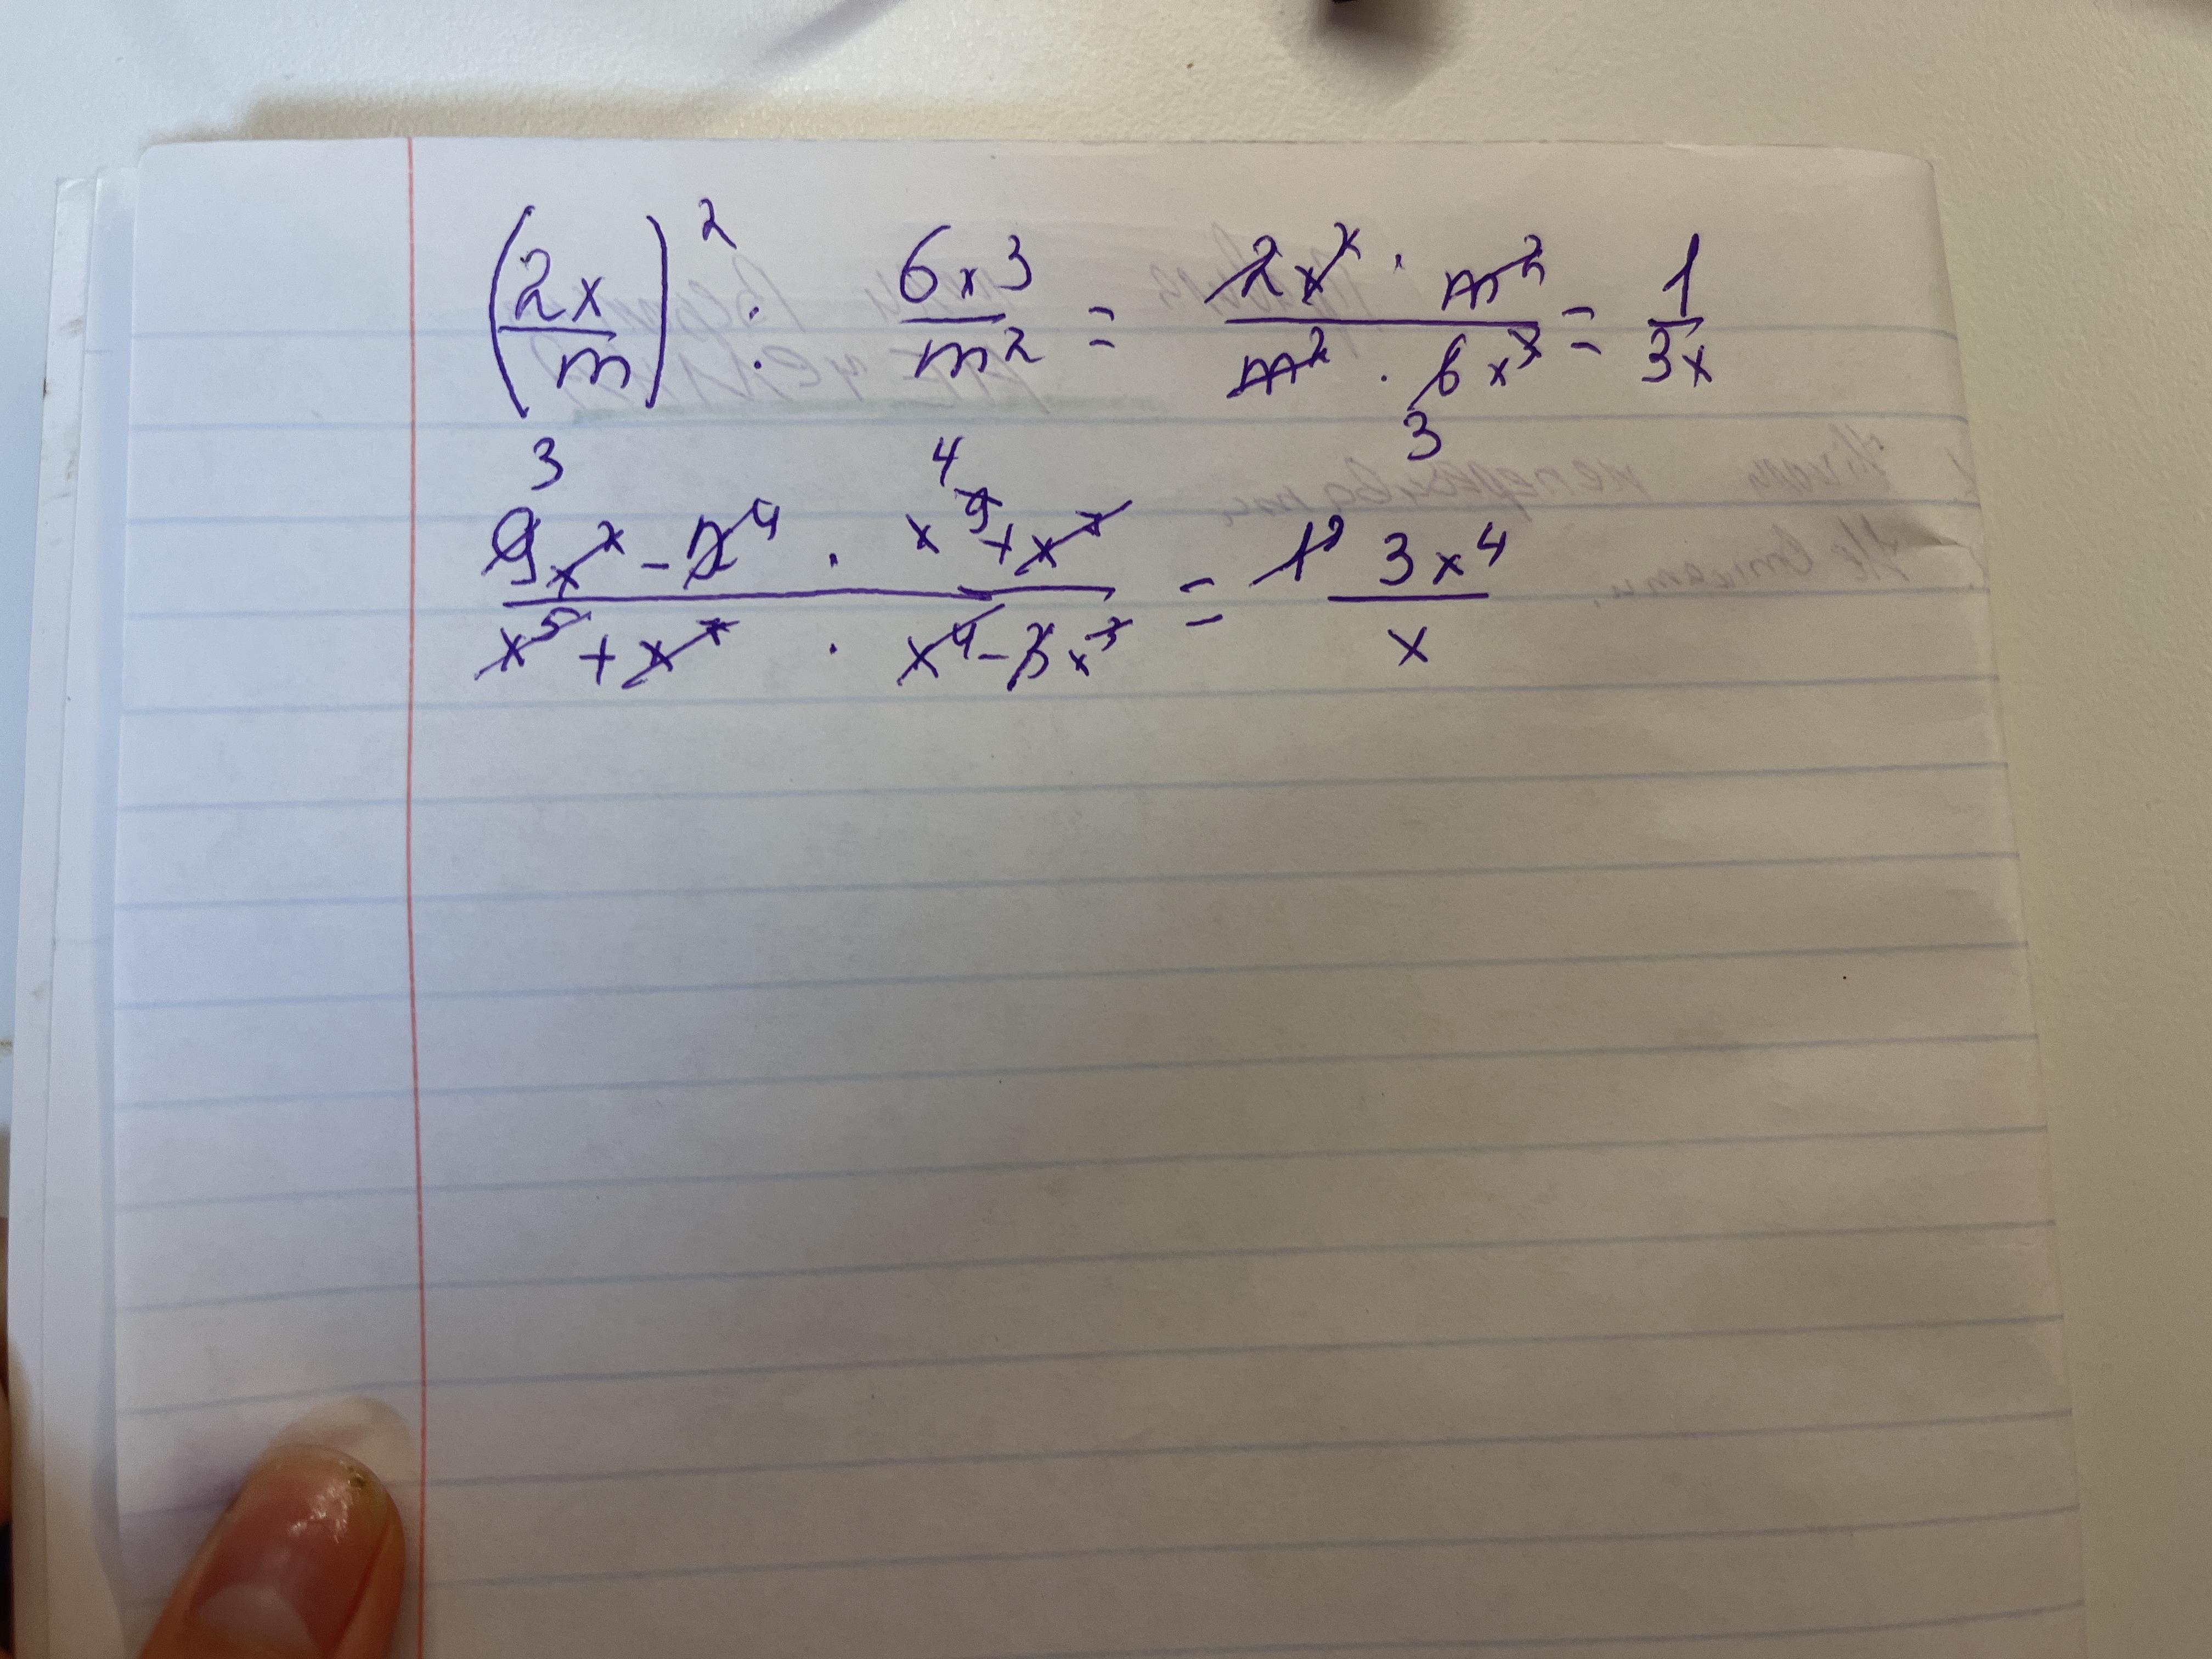 (2x/m)² : 6x³/m² = 2x² · m²/m² · 6x³ = 1/3x
3
3 4
9x² - x⁴ · x⁹ + x⁷/x⁵ + x⁷ · x⁴ - 3x³ = 3x⁴/x